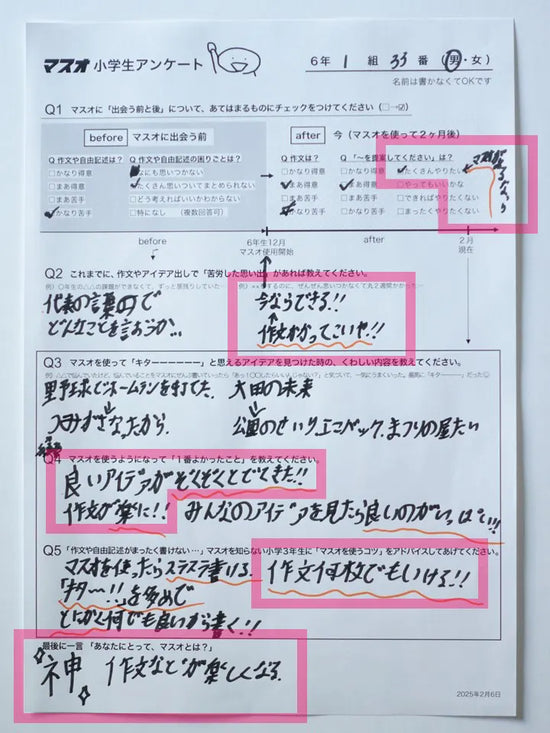 マスオ 小学生アンケート
6年 1 組 33 番 (男・女)
名前は書かなくてOKです
Q1 マスオに「出会う前と後」について、あてはまるものにチェックをつけてください(□→☑)
before マスオに出会う前
after 今(マスオを使って2ヶ月後)
Q 作文や自由記述は?
□かなり得意
□まあ得意
□まあ苦手
□かなり苦手
Q 作文や自由記述の困りごとは?
□なにも思いつかない
□たくさん思いついてまとめられない
□どう考えればいいかわからない
□特になし (複数回答可)
Q 作文は?
□かなり得意
□まあ得意
□まあ苦手
□かなり苦手
Q 自由記述は?
□かなり得意
□まあ得意
□まあ苦手
□かなり苦手
Q「〜を提案してください」は?
□たくさんやりたい
□やってもいいかな
□できればやりたくない
□まったくやりたくない
マスオが
before
6年生12月
マスオ使用開始
after
2月
現在
Q2 これまでに、作文やアイデア出しで「苦労した思い出」があれば教えてください。
代表の言葉ので
どんなことを言おうか…
今ならできる!!
↑
作文かかってこいや!!
Q3 マスオを使って「キターーーーーー」と思えるアイデアを見つけた時の、くわしい内容を教えてください。
野球でホームランを打てた。
大田の未来
↓
公園のせいり、エコバック、まつりの屋たい
Q4 マスオを使うようになって「1番よかったこと」を教えてください。
良いアイデアがぞくぞくとでてきた!!
作文が楽に!!
みんなのアイデアを見たら良いのがいっぱい!!!
Q5「作文や自由記述がまったく書けない…」マスオを知らない小学3年生に「マスオを使うコツ」をアドバイスしてあげてください。
マスオを使ったらスラスラ書ける。
「キター!!」を多めで
とにかく何でも良いから書く!!
作文何枚でもいける!!
最後に一言「あなたにとって、マスオとは?」
神 作文などが楽しくなる。
2025年2月6日